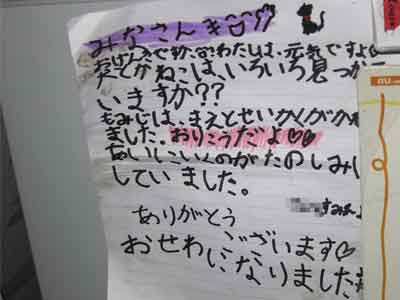 みなさんき
おげんきですか。わたしは、元気ですよ
たとかねこは、いろいろ見つか
いますか??
もみじは、まえとせいかくがかわ
ました。おりこうだよ♡♡
あいにいくのがたのしみに
していました。
すみよ
ありがとう
ございます♡
おせわになりました